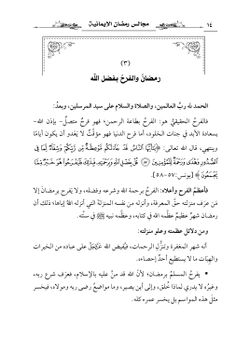 ١٤ مجالس رمضان الإيمانية
(٣)
رمضانُ والفرحُ بفضل الله
الحمد لله ربِّ العالمين، والصلاة والسلام على سيد المرسلين، وبعدُ:
فالفرحُ الحقيقيُّ هو: الفرحُ بطاعة الرحمن؛ فهو فرحٌ متصلٌ- بإذن الله-
بسعادة الأبد في جنات الخلود، أما فرح الدنيا فهو مؤقَّتٌ لا يَعدو أن يكون أيامًا
وينتهي، قال الله تعالى: ﴿يَا أَيُّهَا النَّاسُ قَدْ جَاءَتْكُمْ مَوْعِظَةٌ مِنْ رَبِّكُمْ وَشِفَاءٌ لِمَا فِي
الصُّدُورِ وَهُدًى وَرَحْمَةٌ لِلْمُؤْمِنِينَ ﴿٥٧﴾ قُلْ بِفَضْلِ اللَّهِ وَبِرَحْمَتِهِ فَبِذَلِكَ فَلْيَفْرَحُوا هُوَ خَيْرٌ مِمَّا
يَجْمَعُونَ﴾ [يونس: ٥٧-٥٨].
فأعظمُ الفرح وأجلُّه: الفرحُ برحمة الله وشرعه وفضله، ولا يَفرح برمضانَ إلا
مَن عَرَف منزلته حقَّ المعرفة، وأنزله من نفسه المنزلةَ التي أنزله اللهُ إياها؛ ذلك أن
رمضان شهرٌ عظيمٌ عظَّمه الله في كتابه، وعظَّمه نبيه ﷺ في سنَّته.
ومن دلائل عظمته وعلو منزلته:
أنه شهر المغفرة وتنزُّل الرحمات، فيُفيض الله ﷻ على عباده من الخيرات
والهبات ما لا يستطيع أحدٌ إحصاءه.
- يفرحُ المسلمُ برمضان؛ لأنَّ الله قد منَّ عليه بالإسلام، فعرَف شرع ربه،
وغيرُه لا يدري لماذا خُلق، وإلى أين يصير، وما مواضعُ رضى ربه ومولاه، فيخسر
مثل هذه المواسم بل يخسر عمره كله.